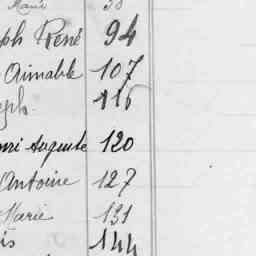 Marie 38
ph René 94
Aimable 107
eph. 116
nri Auguste 120
Antoine 127
Marie 131
is 144